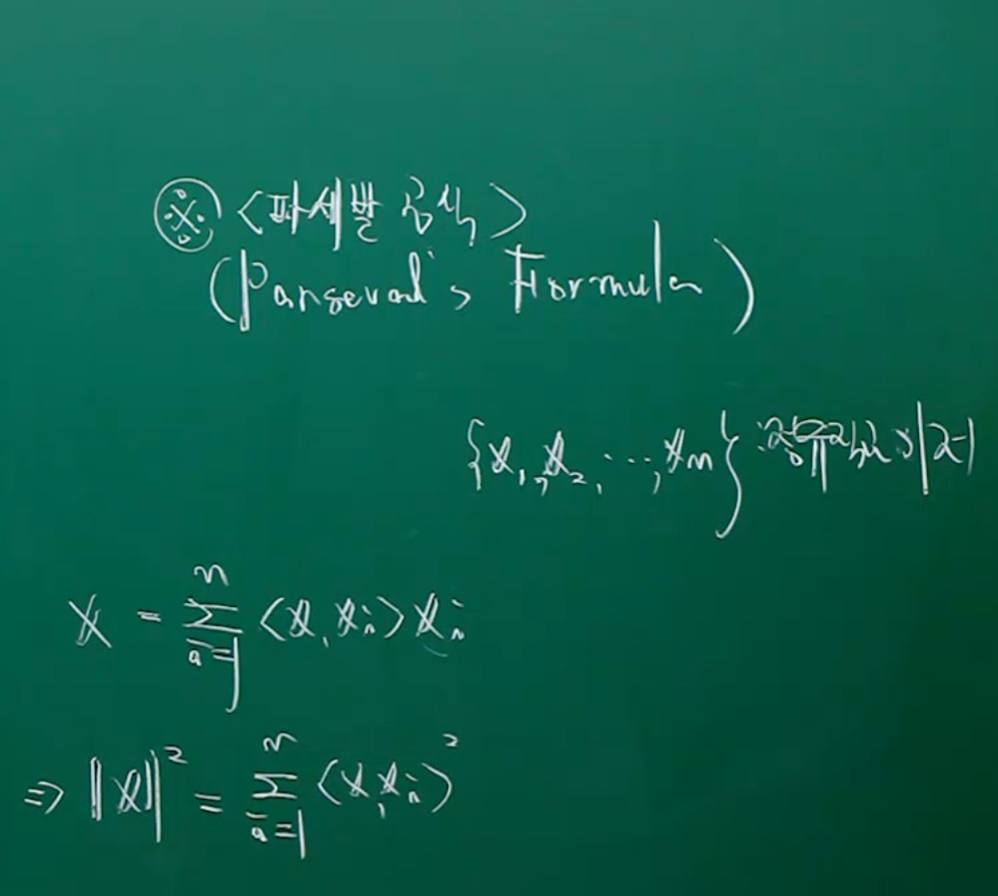 ※ <파세발 공식>
(Parseval's Formula)
{x₁, x₂, ..., xₙ} : 정규직교이고
x = Σⁿᵢ₌₁ <x, xᵢ> xᵢ
⇒ ‖x‖² = Σⁿᵢ₌₁ <x, xᵢ>²